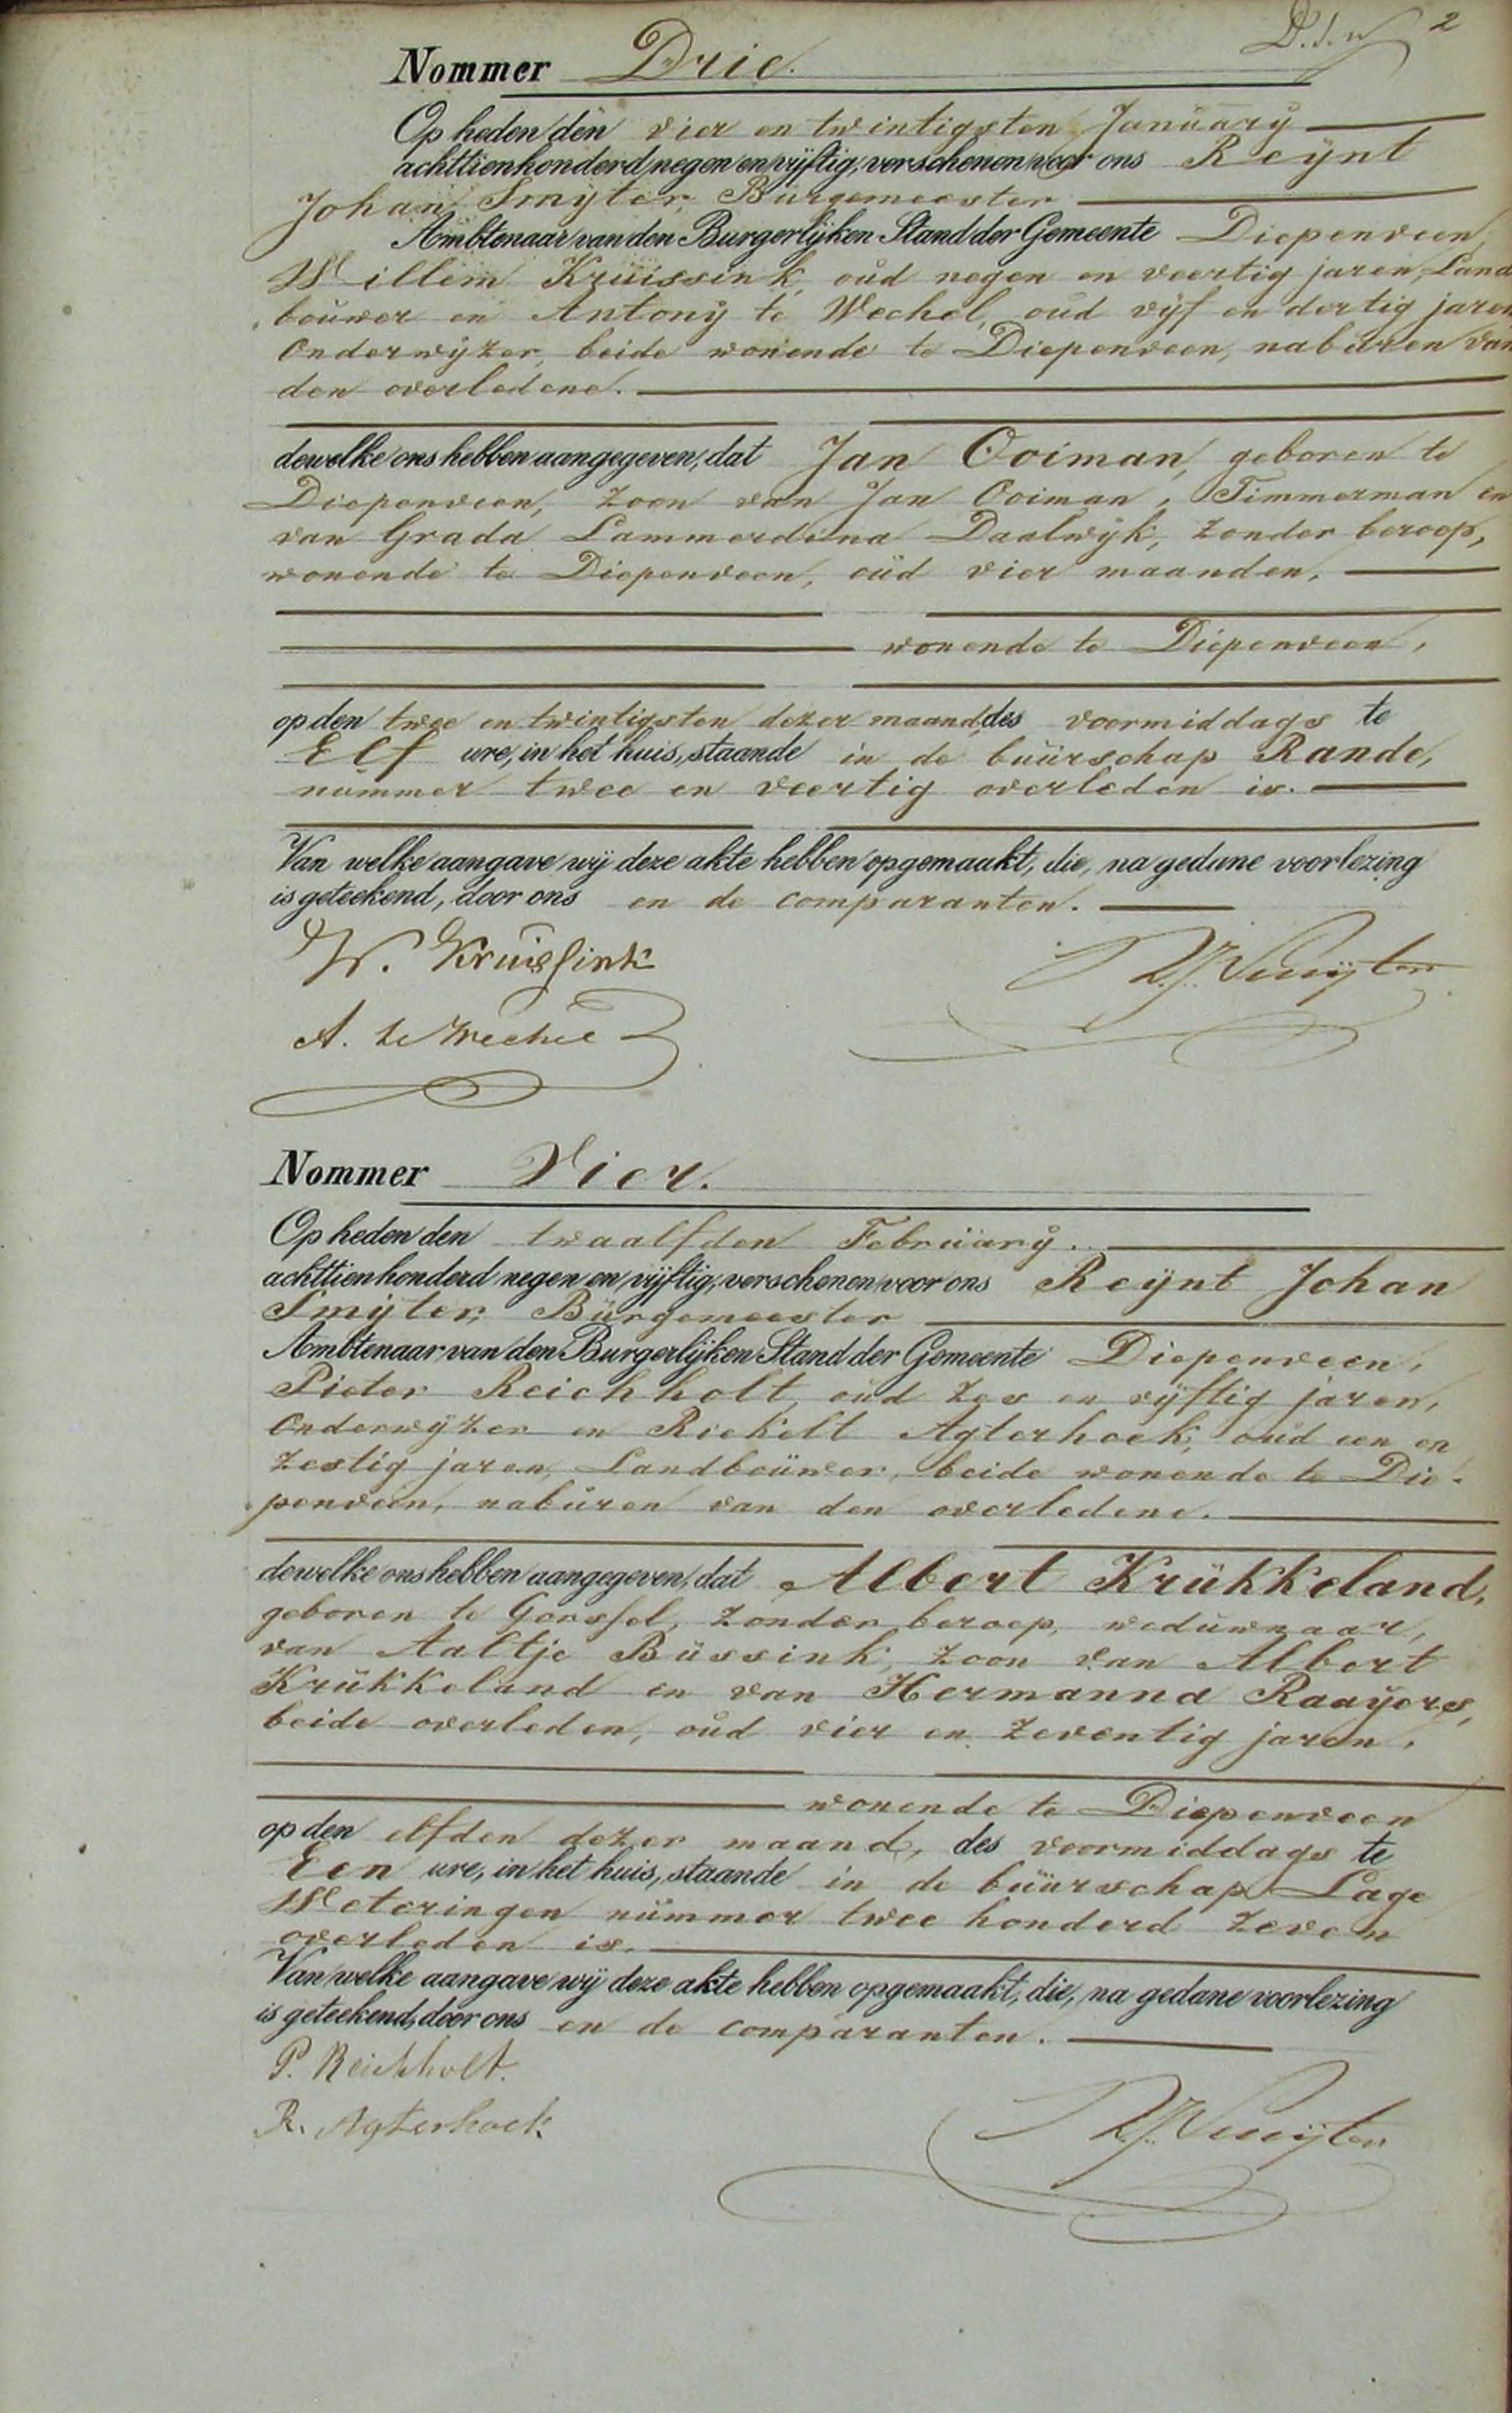 2
Nommer Drie.
Op heden den vier en twintigsten January
achttienhonderd negen en vyftig, verschenen voor ons Reynt
Johan Smyter, Burgemeester
Ambtenaar van den Burgerlyken Stand der Gemeente Diepenveen,
Willem Kruissink, oud negen en veertig jaren, Land
bouwer en Antony te Wechel, oud vyf en dertig jaren
Onderwyzer, beide wonende te Diepenveen, naburen van
den overledene.
dewelke ons hebben aangegeven, dat Jan Ooiman, geboren te
Diepenveen, zoon van Jan Ooiman, Timmerman en
van Grada Lammerdina Daalwyk, zonder beroep,
wonende te Diepenveen, oud vier maanden,
wonende te Diepenveen,
op den twee en twintigsten dezer maand, des voormiddags te
Elf ure, in het huis, staande in de buurschap Rande,
nummer twee en veertig overleden is.
Van welke aangave wy deze akte hebben opgemaakt, die, na gedane voorlezing
is geteekend, door ons en de comparanten.
W. Kruissink RJ Smyter
A. te Wechel
Nommer Vier.
Op heden den twaalfden February.
achttienhonderd negen en vyftig, verschenen voor ons Reynt Johan
Smyter, Burgemeester
Ambtenaar van den Burgerlyken Stand der Gemeente Diepenveen,
Pieter Reichholt, oud zes en vyftig jaren,
Onderwyzer en Riekelt Agterhoek, oud een en
zestig jaren, Landbouwer, beide wonende te Die-
penveen, naburen van den overledene.
dewelke ons hebben aangegeven, dat Albert Krukkeland,
geboren te Gorssel, zonder beroep, weduwnaar,
van Aaltje Bussink, zoon van Albert
Krukkeland en van Hermanna Raayers,
beide overleden, oud vier en zeventig jaren,
wonende te Diepenveen
op den elfden dezer maand, des voormiddags te
Een ure, in het huis, staande in de buurschap Lage
Weteringen nummer twee honderd zeven
overleden is.
Van welke aangave wy deze akte hebben opgemaakt, die, na gedane voorlezing
is geteekend, door ons en de comparanten.
P. Reichholt.
R. Agterhoek. RJ Smyter